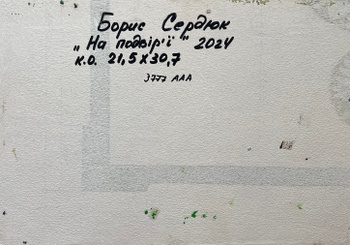 Борис Сердюк
„На подвір'ї" 2024
к.о. 21,5x30,7
3777 ААА